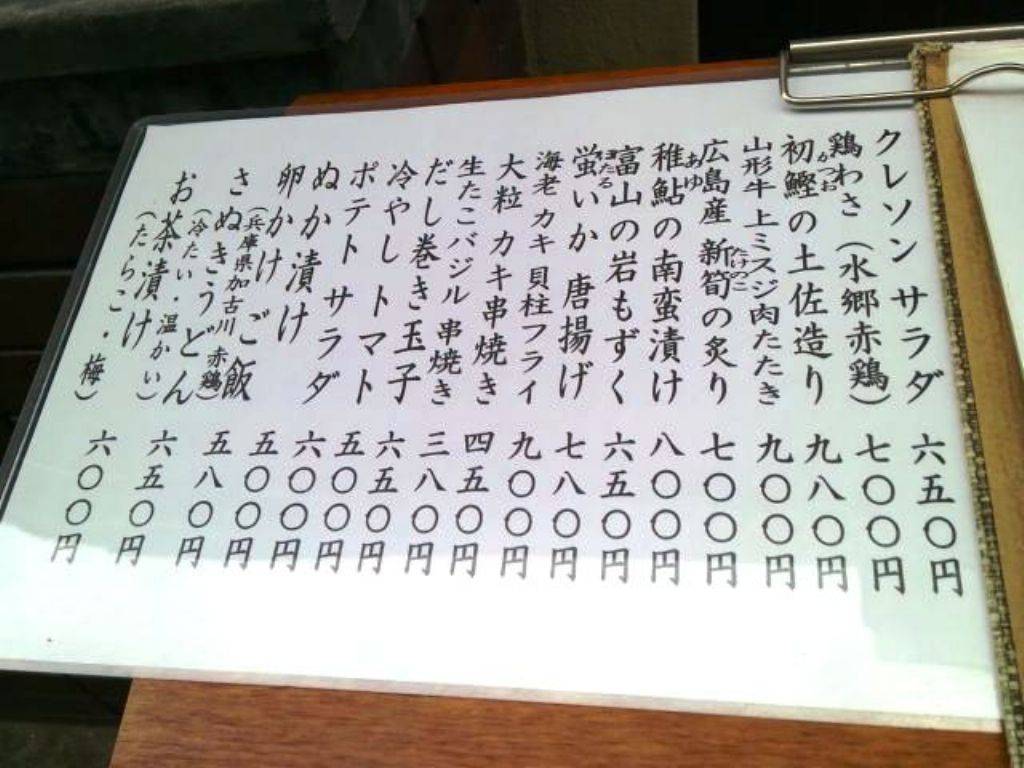 クレソン サラダ 六五〇円
鶏わさ（水郷赤鶏） 七〇〇円
初鰹の土佐造り 九八〇円
かつお
山形牛 上ミスジ肉たたき 九〇〇円
広島産 新筍の炙り 七〇〇円
たけのこ
稚鮎の南蛮漬け 八〇〇円
あゆ
富山の岩もずく 六五〇円
蛍いか 唐揚げ 七八〇円
ほたる
海老 カキ 貝柱フライ 九〇〇円
大粒 カキ串焼き 四五〇円
生たこバジル 串焼き 三八〇円
だし巻き玉子 六五〇円
冷やし トマト 五〇〇円
ポテトサラダ 六〇〇円
ぬか漬け 五〇〇円
卵かけご飯 五八〇円
（兵庫県加古川 赤鶏）
さぬきうどん 六五〇円
（冷たい・温かい）
お茶漬け 六〇〇円
（たらこ・梅）